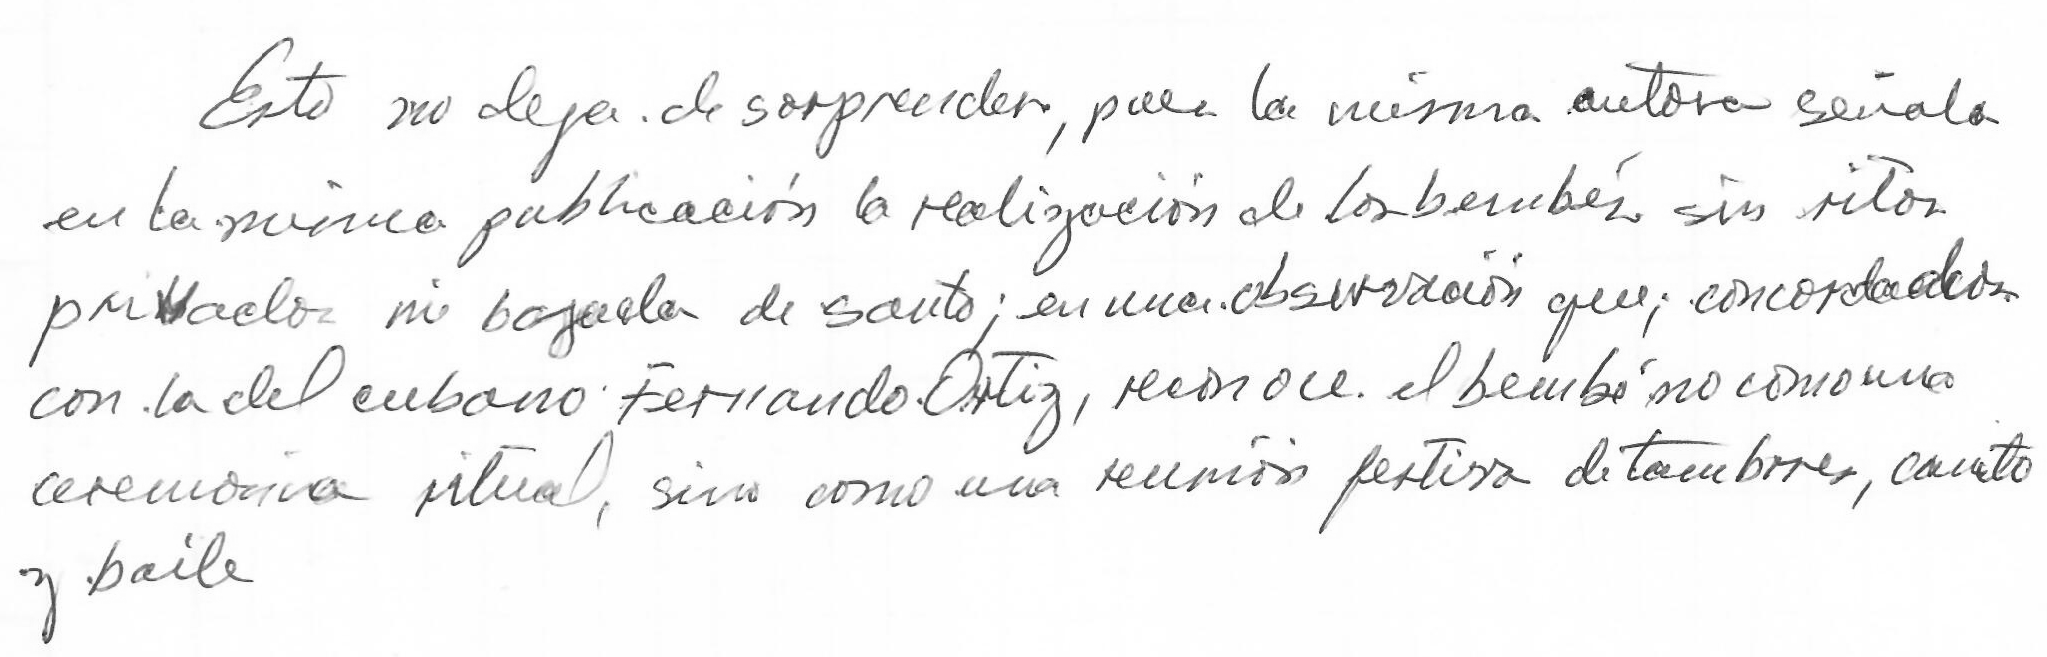 Esto no deja de sorprender, pues la misma autora señala
en la misma publicación la realización de los bembés sin ritos
privados ni bajada de santo; en una observación que, concordando
con la del cubano Fernando Ortiz, reconoce el bembé no como una
ceremonia ritual, sino como una reunión festiva de tambores, canto
y baile